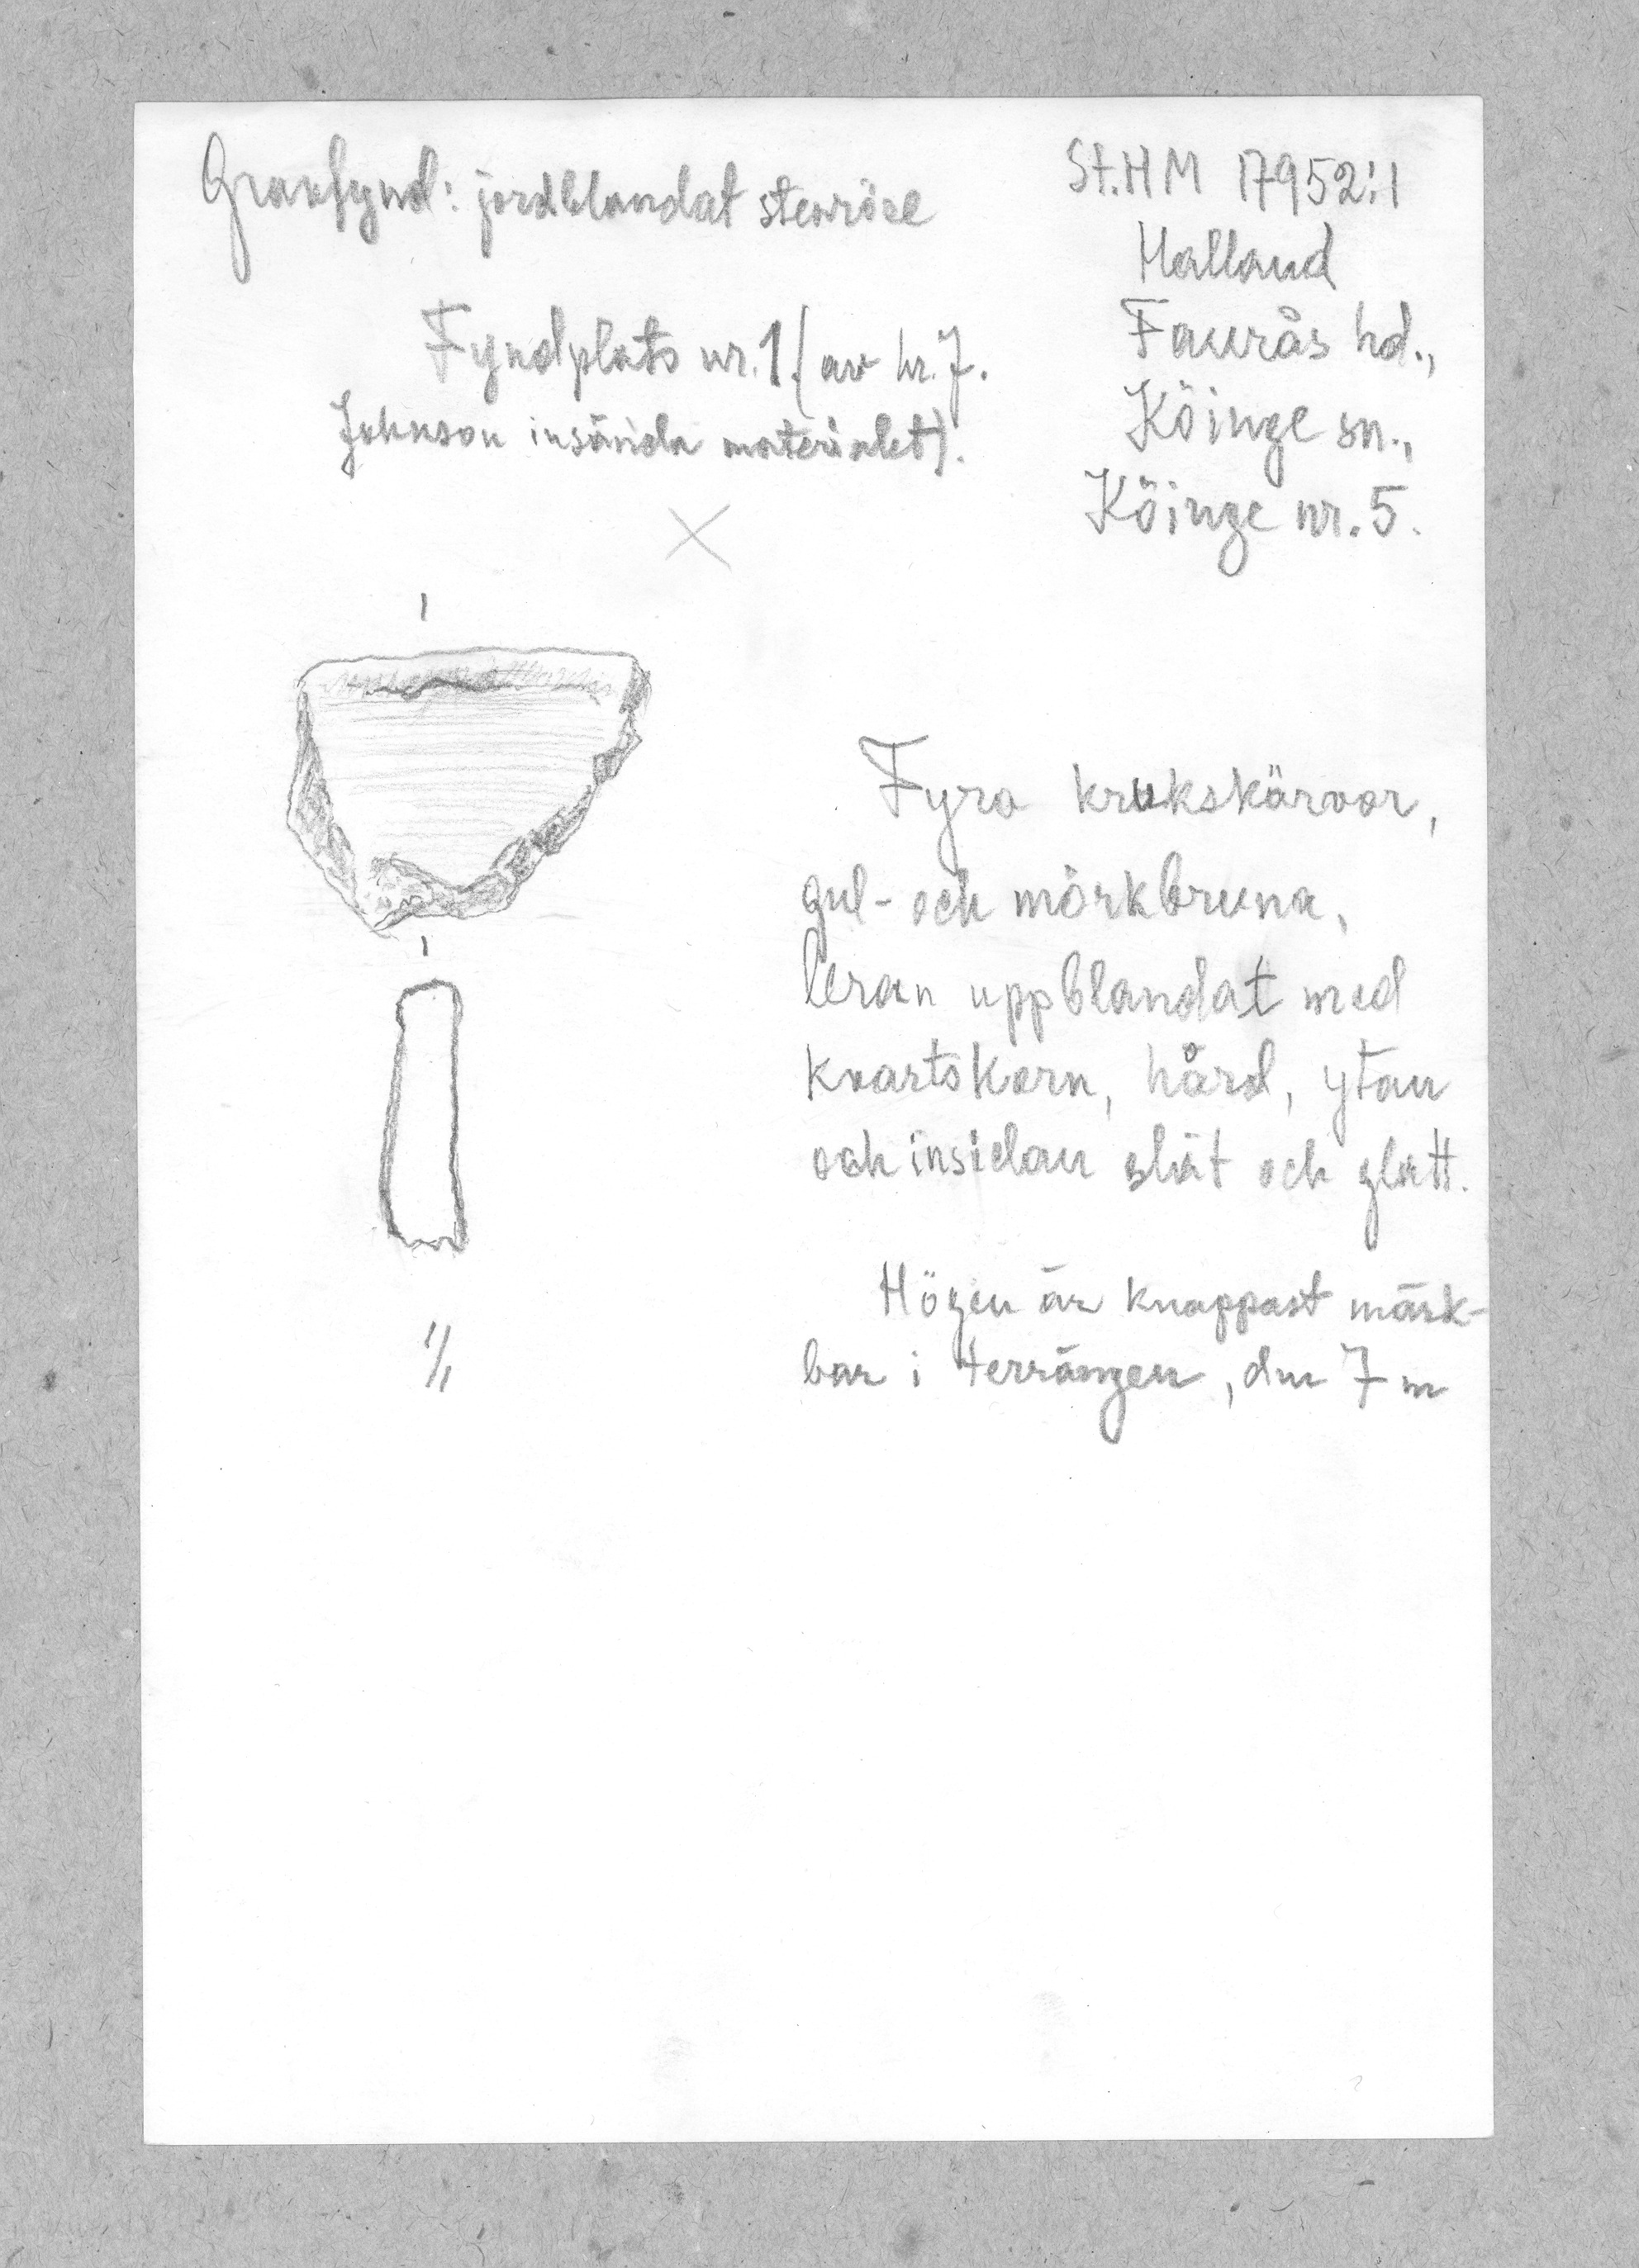 Gravfynd: jordblandat stenröse
St.HM 17952:1
Halland
Faurås hd.,
Köinge sn.,
Köinge nr. 5.
Fyndplats nr. 1. (av hr. J.
Johnson insända materialet).
Fyra krukskärvor,
gul- och mörkbruna,
leran uppblandat med
kvartskorn, hård, ytan
och insidan slät och glatt.
Högen är knappast märk-
bar i terrängen, dm 7 m
1/1